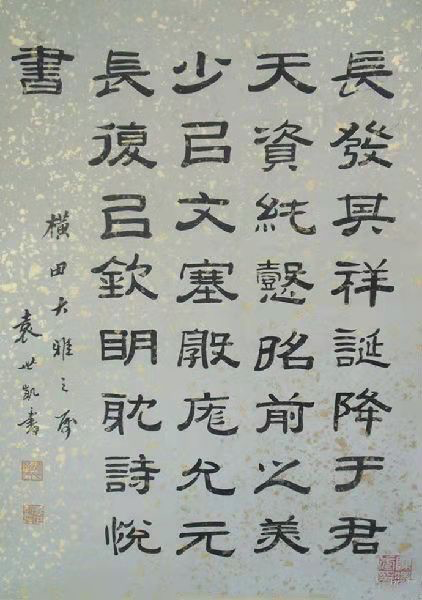 長發其祥誕降于君
天資純懿昭前之美
少㠯文塞敦庬允元
長復㠯欽眀耽詩悅
書
橫田大雅之屬
袁世凱書